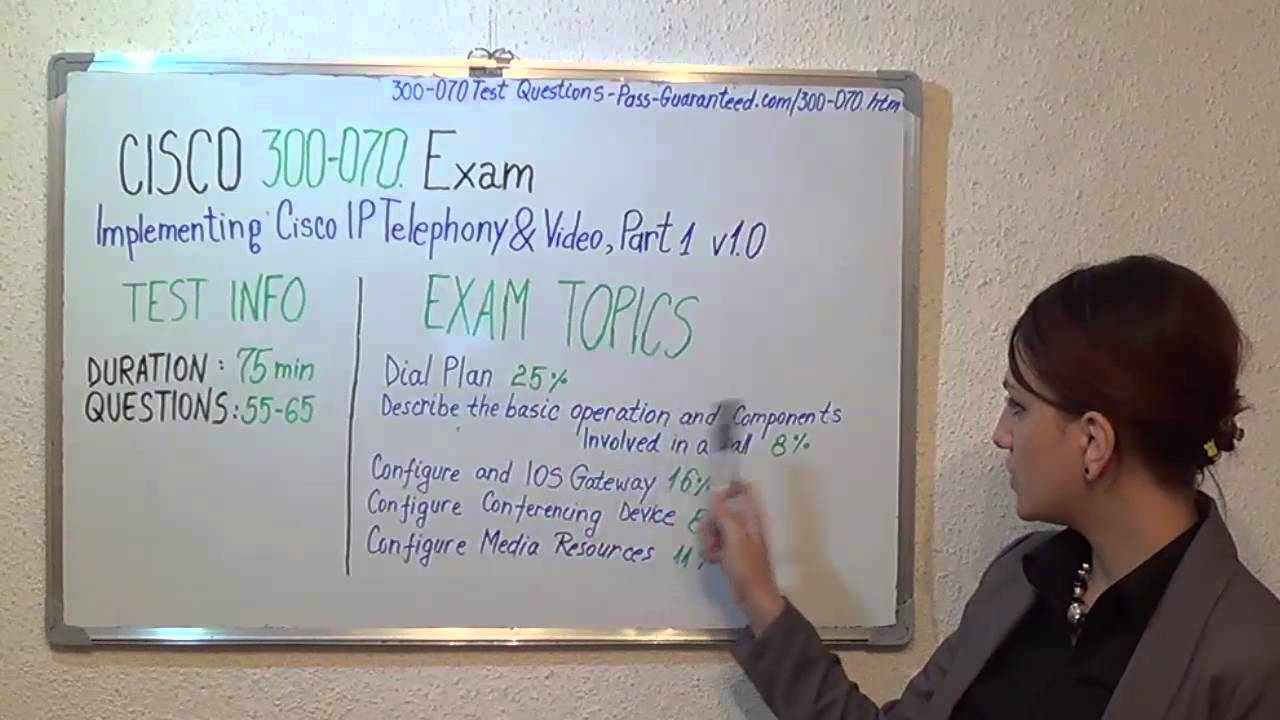 300-070 Test Questions-Pass-Guaranteed.com/300-070.htm
CISCO 300-070. Exam
Implementing Cisco IP Telephony & Video, Part 1 v1.0
TEST INFO
DURATION: 75 min
QUESTIONS: 55-65
EXAM TOPICS
Dial Plan 25%
Describe the basic operation and Components
Involved in a
8%
Configure and IOS Gateway 16%
Configure Conferencing Device
Configure Media Resources 11%